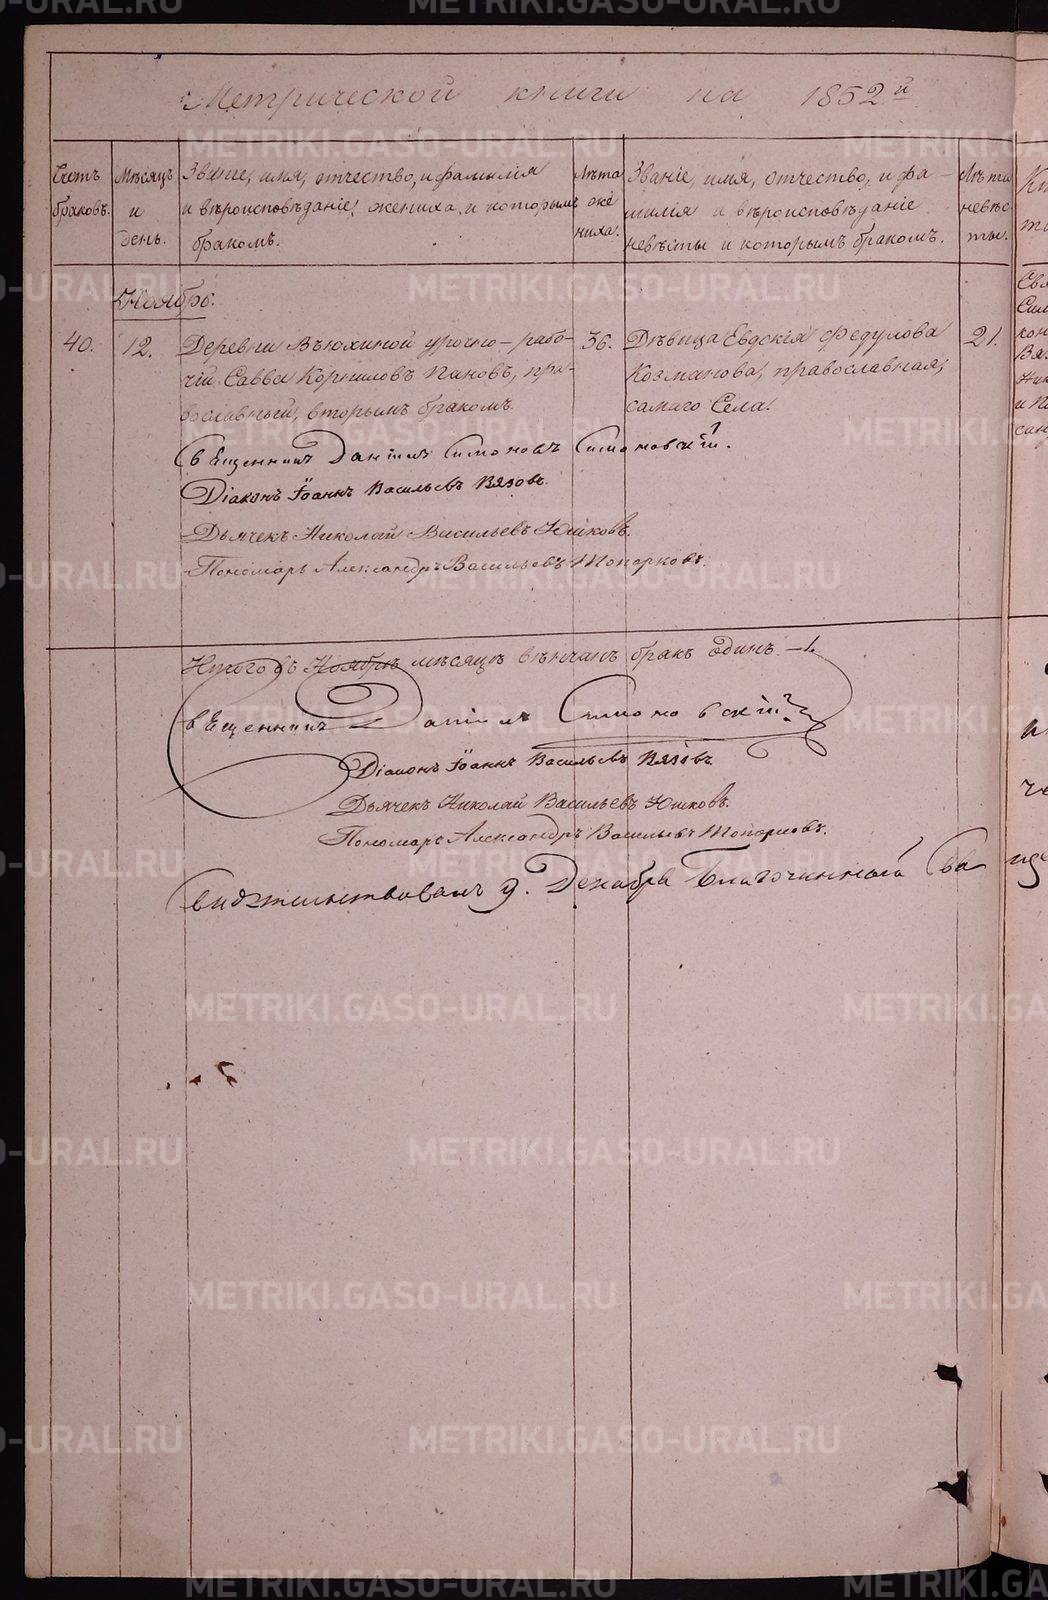 Метрической книги на 1852й
Счетъ браковъ.
Мѣсяцъ и день.
Званіе, имя, отчество, и фамилія
и вѣроисповѣданіе жениха, и которымъ
бракомъ.
Лѣта жениха.
Званіе, имя, отчество, и фа-
милія и вѣроисповѣданіе
невѣсты и которымъ бракомъ.
Лѣта невѣсты.
Ноябрь.
40.
12.
Деревни Вьюхиной урочно-рабо-
чій Савва Корниловъ Пановъ, пра-
вославный, вторымъ бракомъ.
36.
Дѣвица Евдокія Федулова
Козманова, православная,
самаго Села.
21.
Священникъ Даніилъ Симоновъ Симоновскій.
Діаконъ Іоаннъ Васильевъ Вязовъ.
Дьячекъ Николай Васильевъ Юшковъ.
Пономарь Александръ Васильевъ Топорковъ.
Итого въ Ноябрѣ мѣсяцѣ вѣнчанъ бракъ одинъ. -1.
Священникъ Даніилъ Симоновскій
Діаконъ Іоаннъ Васильевъ Вязовъ
Дьячекъ Николай Васильевъ Юшковъ.
Пономарь Александръ Васильевъ Топорковъ.
Свидѣтельствовалъ 9. Декабря Благочинный Свя
METRIKI.GASO-URAL.RU